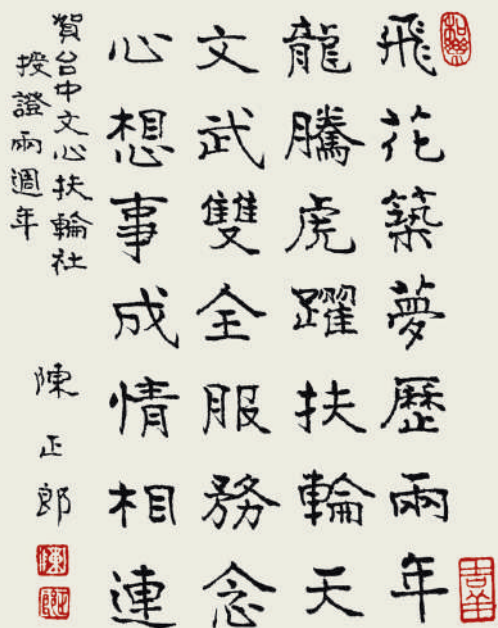 飛花築夢歷兩年
龍騰虎躍扶輪天
文武雙全服務念
心想事成情相連
賀台中文心扶輪社
授證兩週年
陳正郎
吉羊